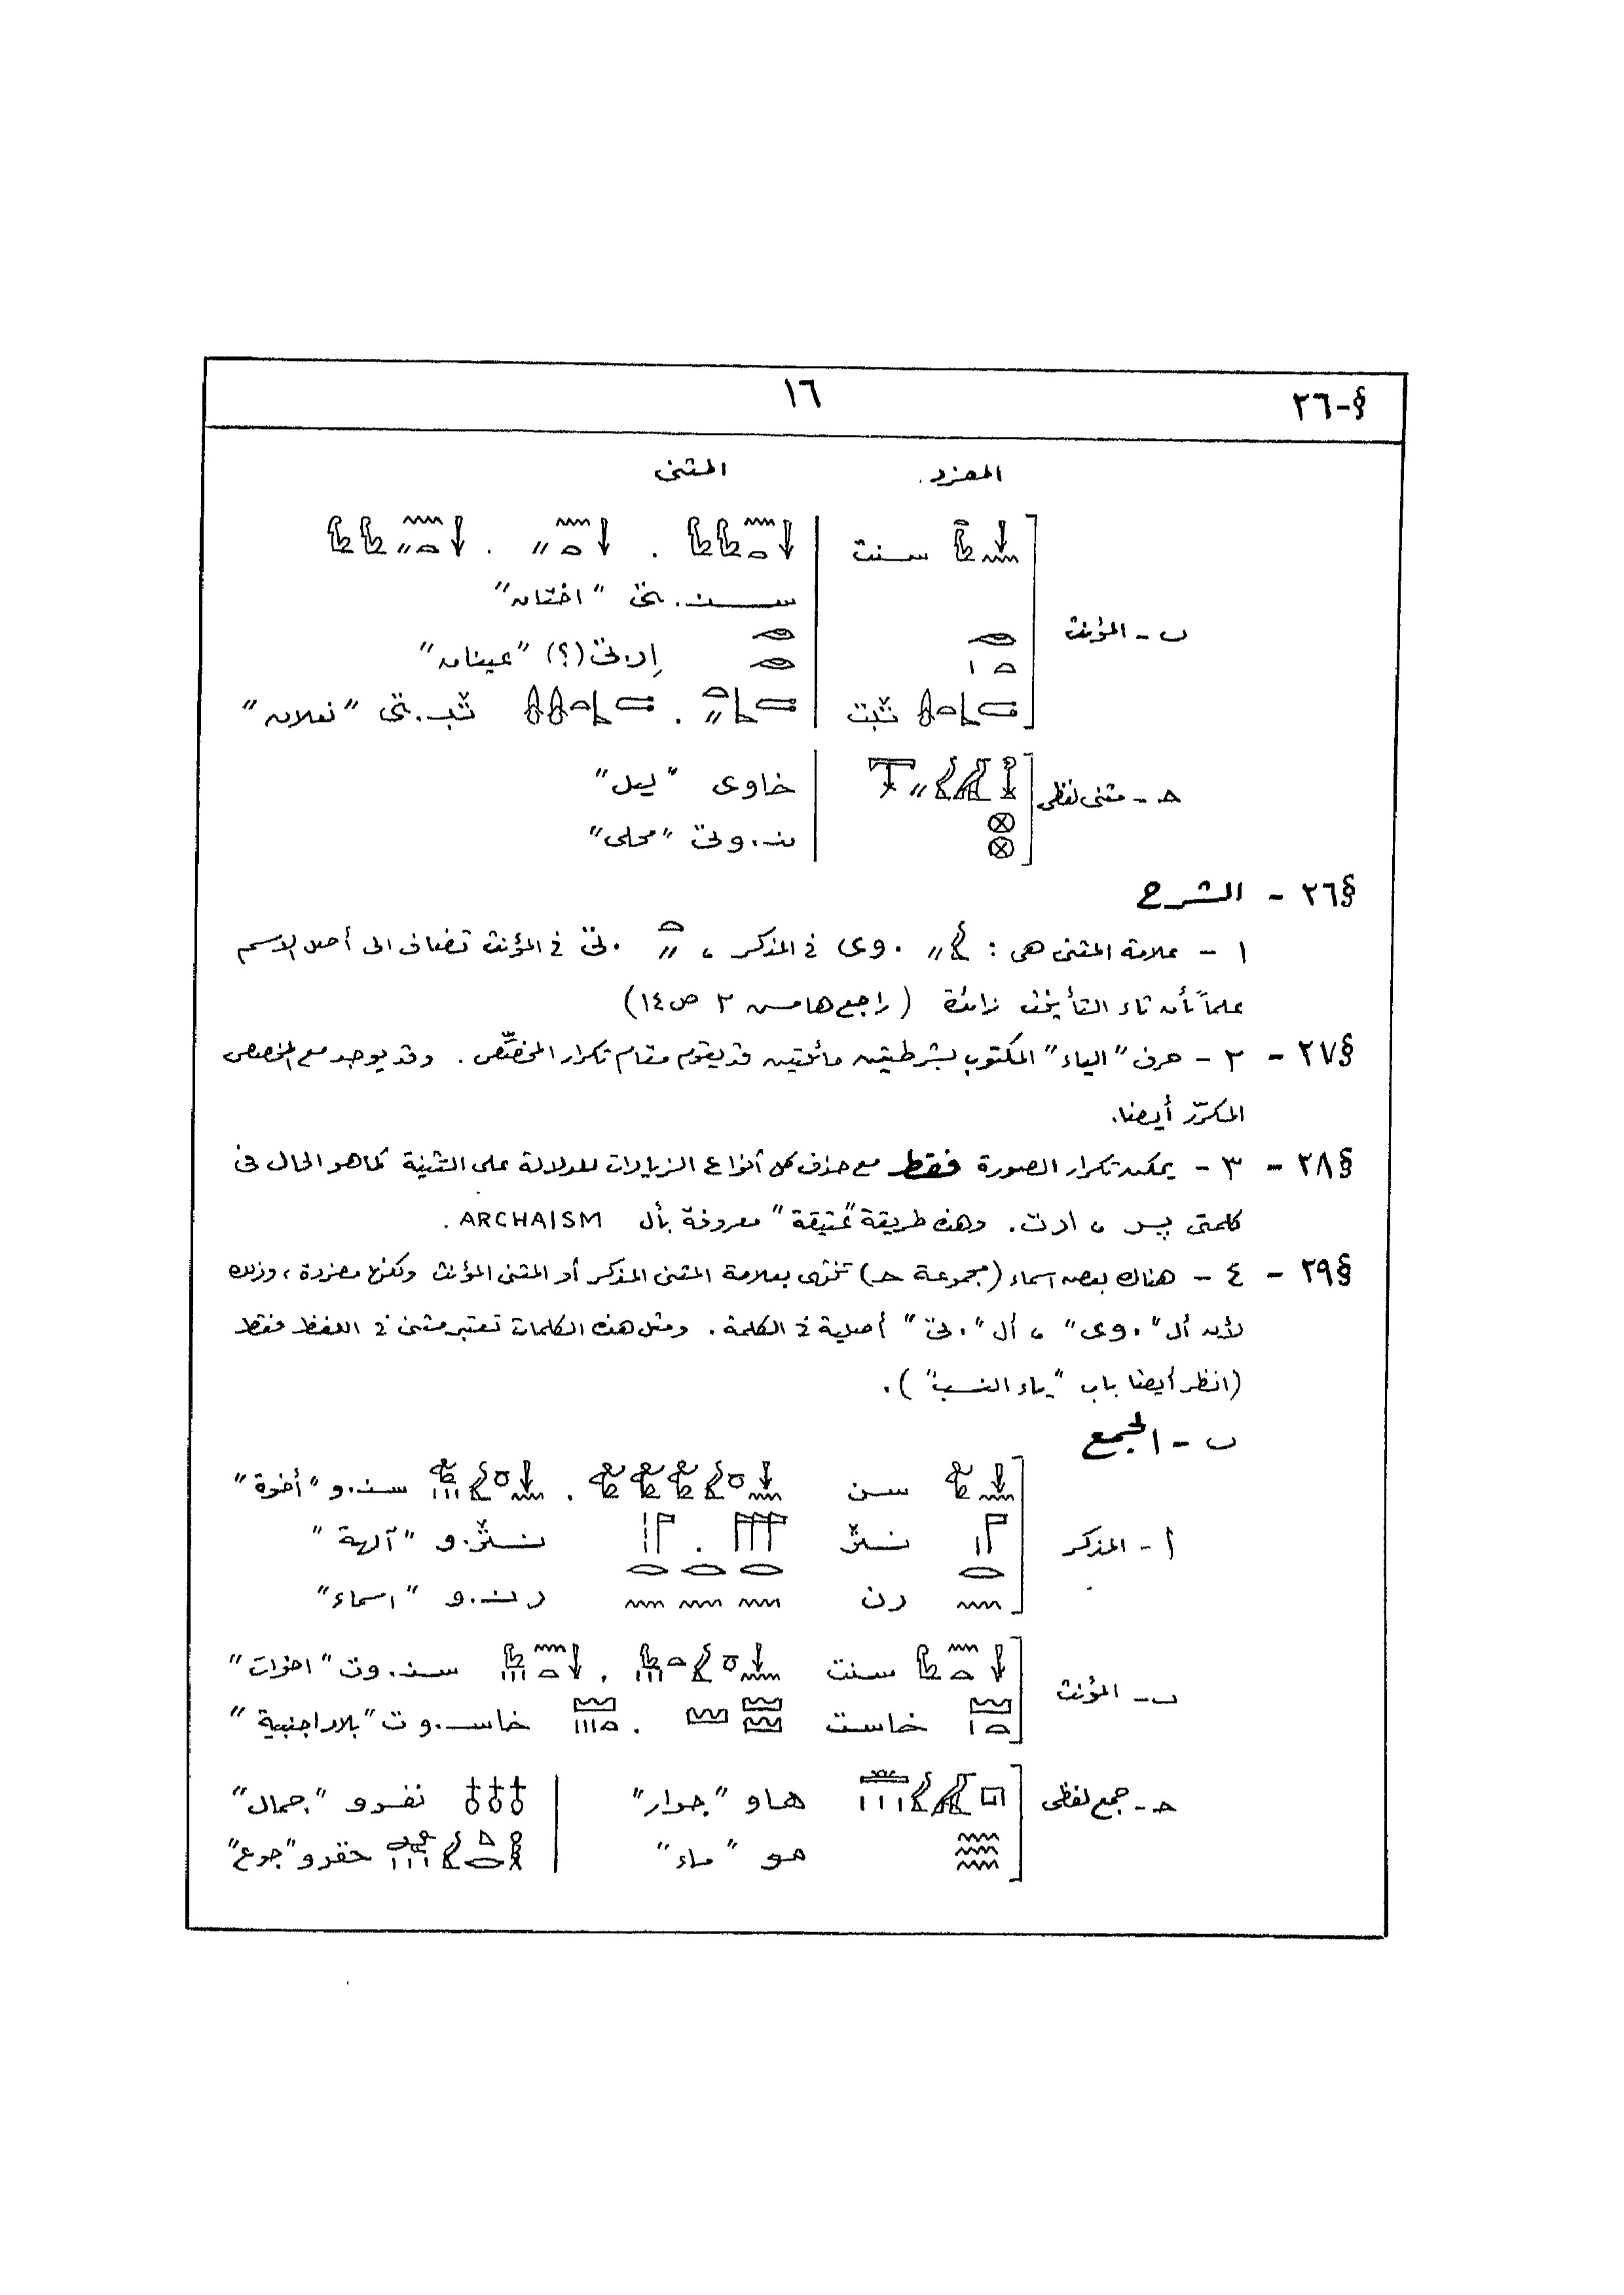 §-٢٦ ١٦
المفرد المثنى
سنت
ب - المؤنث سن.تى "اختان"
إر.تى (؟) "عينان"
ثبت ثب.تى "نعلان"
حـ - مثنى لفظى خاوى "ليل"
ن.وتى "محلى"
§٢٦ - الشرح
١ - علامة المثنى هى : .وى فى المذكر ، .تى فى المؤنث تضاف الى أصل الاسم
علماً بأن تاء التأنيث زائدة (راجع هامش ٢ ص ١٤)
§٢٧ - ٢ - حرف "الياء" المكتوب بشرطتين مائلتين قد يقوم مقام تكرار المخصّص . وقد يوجد مع المخصص
المكرّر أيضا.
§٢٨ - ٣ - يمكن تكرار الصورة فقط مع حذف كل أنواع الزيادات للدلالة على التثنية كما هو الحال فى
كلمتى پر ، ارت. وهذه طريقة "عتيقة" معروفة بأل ARCHAISM .
§٢٩ - ٤ - هناك بعض اسماء (مجموعة حـ) تنتهى بعلامة المثنى المذكر أو المثنى المؤنث ولكنها مفردة ، وذلك
لأن أل ".وى" ، أل ".تى" أصلية فى الكلمة . ومثل هذه الكلمات تعتبر مثنى فى اللفظ فقط
(انظر أيضا باب "ياء النسب") .
ب - الجمع
سن سن.و "أخوة"
أ - المذكر نثر نثر.و "آلهة"
رن رن.و "اسماء"
سنت سن.وت "اخوات"
ب - المؤنث
خاست خاس.وت "بلاد اجنبية"
حـ - جمع لفظى هاو "جوار" نفرو "جمال"
مو "ماء" حقرو "جوع"